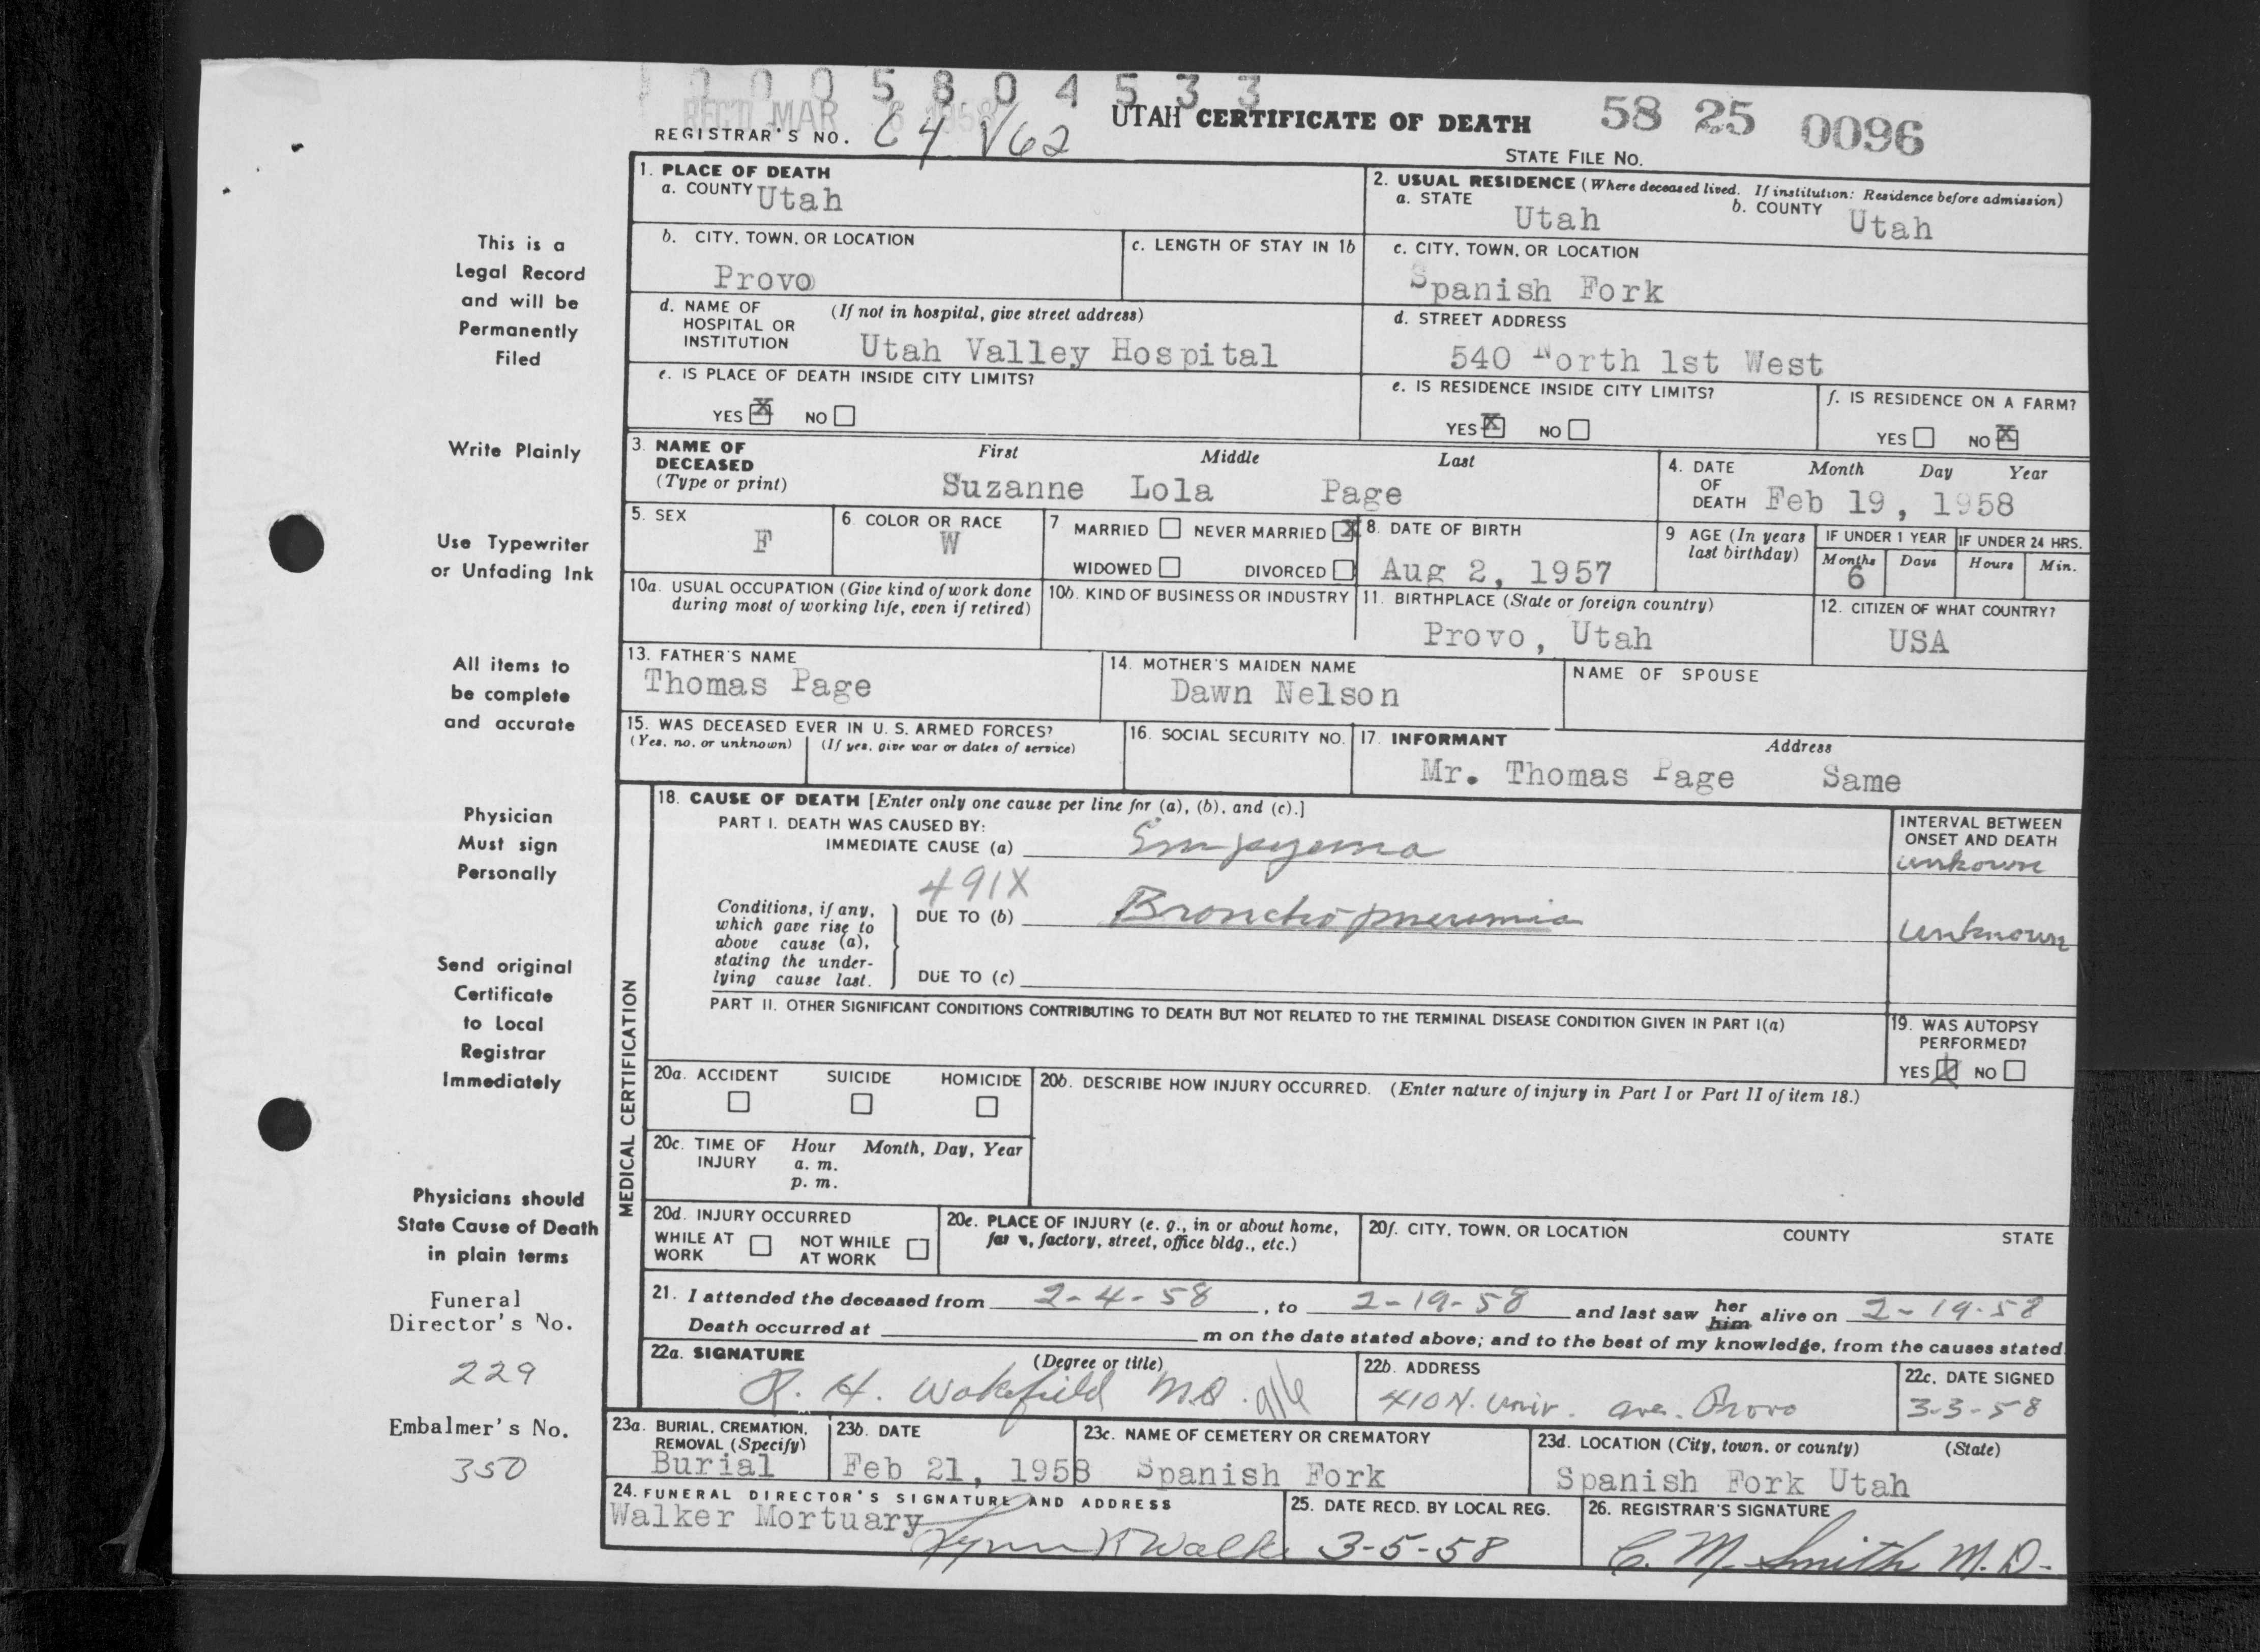 0005804533
REC'D MAR 1958
UTAH CERTIFICATE OF DEATH
58 25 0096
REGISTRAR'S NO. 64 V62
STATE FILE NO.
1. PLACE OF DEATH
a. COUNTY Utah
2. USUAL RESIDENCE (Where deceased lived. If institution: Residence before admission)
a. STATE Utah b. COUNTY Utah
b. CITY, TOWN, OR LOCATION Provo
c. LENGTH OF STAY IN 1b
c. CITY, TOWN, OR LOCATION
Spanish Fork
d. NAME OF HOSPITAL OR INSTITUTION (If not in hospital, give street address)
Utah Valley Hospital
d. STREET ADDRESS
540 North 1st West
e. IS PLACE OF DEATH INSIDE CITY LIMITS?
YES X NO
e. IS RESIDENCE INSIDE CITY LIMITS?
YES X NO
f. IS RESIDENCE ON A FARM?
YES NO X
3. NAME OF DECEASED (Type or print)
First Middle Last
Suzanne Lola Page
4. DATE OF DEATH Month Day Year
Feb 19, 1958
5. SEX
F
6. COLOR OR RACE
W
7 MARRIED NEVER MARRIED X
WIDOWED DIVORCED
8. DATE OF BIRTH
Aug 2, 1957
9 AGE (In years last birthday)
IF UNDER 1 YEAR IF UNDER 24 HRS.
Months Days Hours Min.
6
10a. USUAL OCCUPATION (Give kind of work done during most of working life, even if retired)
10b. KIND OF BUSINESS OR INDUSTRY
11. BIRTHPLACE (State or foreign country)
Provo, Utah
12. CITIZEN OF WHAT COUNTRY?
USA
13. FATHER'S NAME
Thomas Page
14. MOTHER'S MAIDEN NAME
Dawn Nelson
NAME OF SPOUSE
15. WAS DECEASED EVER IN U. S. ARMED FORCES?
(Yes, no, or unknown) (If yes, give war or dates of service)
16. SOCIAL SECURITY NO.
17. INFORMANT Address
Mr. Thomas Page Same
MEDICAL CERTIFICATION
18. CAUSE OF DEATH [Enter only one cause per line for (a), (b), and (c).]
PART I. DEATH WAS CAUSED BY:
IMMEDIATE CAUSE (a) Empyema
INTERVAL BETWEEN ONSET AND DEATH
unkown
491X
Conditions, if any, which gave rise to above cause (a), stating the underlying cause last.
DUE TO (b) Bronchopneumonia
unknown
DUE TO (c)
PART II. OTHER SIGNIFICANT CONDITIONS CONTRIBUTING TO DEATH BUT NOT RELATED TO THE TERMINAL DISEASE CONDITION GIVEN IN PART I(a)
19. WAS AUTOPSY PERFORMED?
YES X NO
20a. ACCIDENT SUICIDE HOMICIDE
20b. DESCRIBE HOW INJURY OCCURRED. (Enter nature of injury in Part I or Part II of item 18.)
20c. TIME OF INJURY Hour Month, Day, Year
a. m.
p. m.
20d. INJURY OCCURRED
WHILE AT WORK NOT WHILE AT WORK
20e. PLACE OF INJURY (e. g., in or about home, farm, factory, street, office bldg., etc.)
20f. CITY, TOWN, OR LOCATION COUNTY STATE
21. I attended the deceased from 2-4-58, to 2-19-58 and last saw her him alive on 2-19-58
Death occurred at m on the date stated above; and to the best of my knowledge, from the causes stated.
22a. SIGNATURE (Degree or title)
R. H. Wakefield M.D.
22b. ADDRESS
410 N. Univ. ave. Provo
22c. DATE SIGNED
3-3-58
23a. BURIAL, CREMATION, REMOVAL (Specify)
Burial
23b. DATE
Feb 21, 1958
23c. NAME OF CEMETERY OR CREMATORY
Spanish Fork
23d. LOCATION (City, town, or county) (State)
Spanish Fork Utah
24. FUNERAL DIRECTOR'S SIGNATURE AND ADDRESS
Walker Mortuary
Lynn K Walker
25. DATE RECD. BY LOCAL REG.
3-5-58
26. REGISTRAR'S SIGNATURE
C. M. Smith M.D.
This is a
Legal Record
and will be
Permanently
Filed
Write Plainly
Use Typewriter
or Unfading Ink
All items to
be complete
and accurate
Physician
Must sign
Personally
Send original
Certificate
to Local
Registrar
Immediately
Physicians should
State Cause of Death
in plain terms
Funeral
Director's No.
229
Embalmer's No.
350